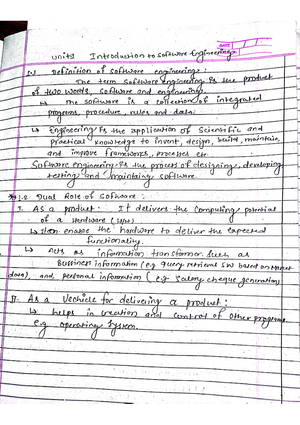 DATE
Unit1 Introduction to Software Engineering
1.1 Definition of software engineering:
The term Software Engineering is the product
of two words, software and engineering.
↳ The software is a collection of integrated
programs, procedure, rules and data.
↳ Engineering is the application of Scientific and
practical knowledge to invent, design, build, maintain,
and improve frameworks, processes etc.
Software engineering is the process of designing, developing
testing and maintaing software
1.2 Dual Role of Software:
I. As a product: It delivers the computing potential
of a Hardware (
↳ enable the hardware to deliver the expected
functionality.
↳ Acts as information transformer such as
Bussiness information (e.g query retrieval SW based on Market
data), and personal information (e.g Salary cheque generation)
II. As a Vechicle for delivering a product:
↳ helps in creation and control of other programs
e.g operating System.